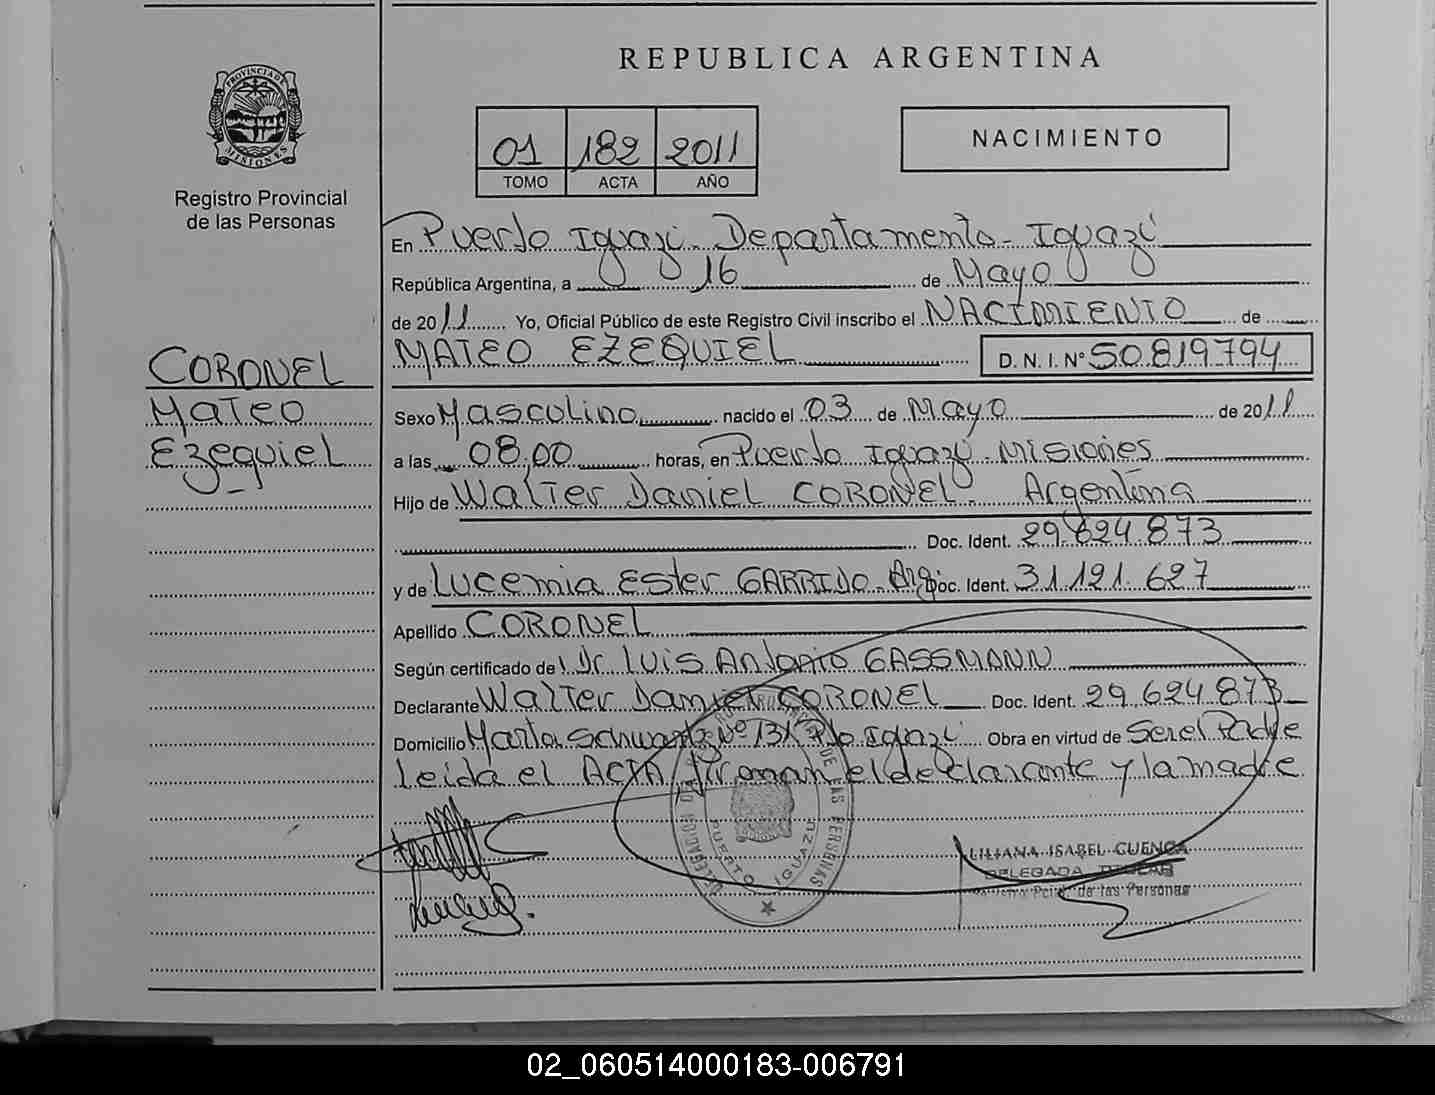 REPUBLICA ARGENTINA
PROVINCIA DE
MISIONES
Registro Provincial
de las Personas
01 182 2011
TOMO ACTA AÑO
NACIMIENTO
En Puerto Iguazú. Departamento - Iguazú
República Argentina, a 16 de Mayo
de 2011 Yo, Oficial Público de este Registro Civil inscribo el NACIMIENTO de
MATEO EZEQUIEL D. N. I. N° 50.819.794
CORONEL
Mateo
Ezequiel
Sexo Masculino nacido el 03 de Mayo de 2011
a las 08,00 horas, en Puerto Iguazú - Misiones
Hijo de Walter Daniel CORONEL. Argentina
Doc. Ident. 29.624.873
y de Lucemia Ester GARRIDO. Arg. Doc. Ident. 31.121.627
Apellido CORONEL
Según certificado de Dr. Luis Antonio GASSMANN
Declarante Walter Daniel CORONEL Doc. Ident. 29.624.873
Domicilio Marta Schwartz N° 131 Pto Iguazú Obra en virtud de Ser el Padre
Leida el ACTA firman el declarante y la madre
DE LAS PERSONAS
PUERTO IGUAZU
LILIANA ISABEL CUENCA
DELEGADA
de las Personas
02_060514000183-006791